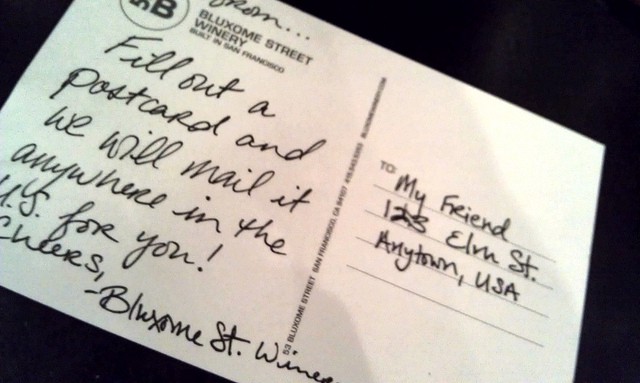 SB
From...
BLUXOME STREET
WINERY
BUILT IN SAN FRANCISCO
Fill out a
postcard and
we will mail it
anywhere in the
U.S. for you!
Cheers,
-Bluxome St. Winery
53 BLUXOME STREET SAN FRANCISCO, CA 94107
TO:
My Friend
123 Elm St.
Anytown, USA